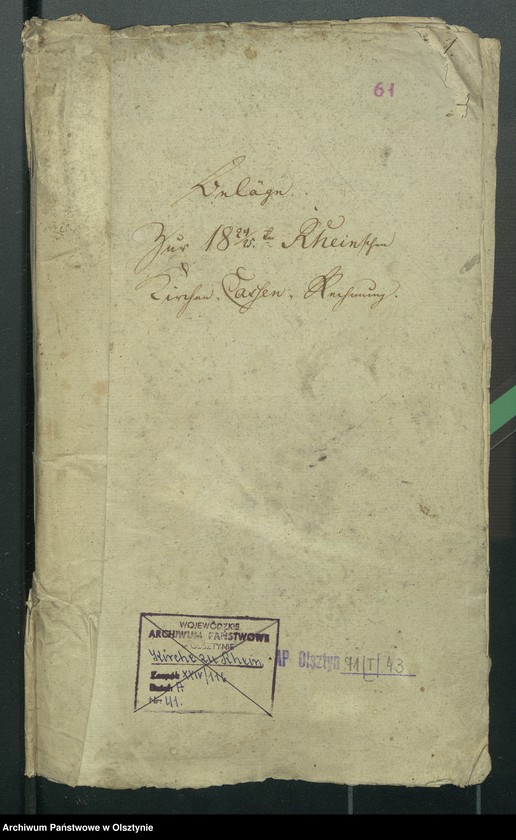 61
Beläge.
Zur 18 24/25. r Rheinschen
Kirchen-Cassen-Rechnung.
WOJEWÓDZKIE
ARCHIWUM PAŃSTWOWE
W OLSZTYNIE
Kirche zu Rhein
Zespół XXIV/176
Dział A
Nr. 41.
AP Olsztyn 91/I/43
Archiwum Państwowe w Olsztynie